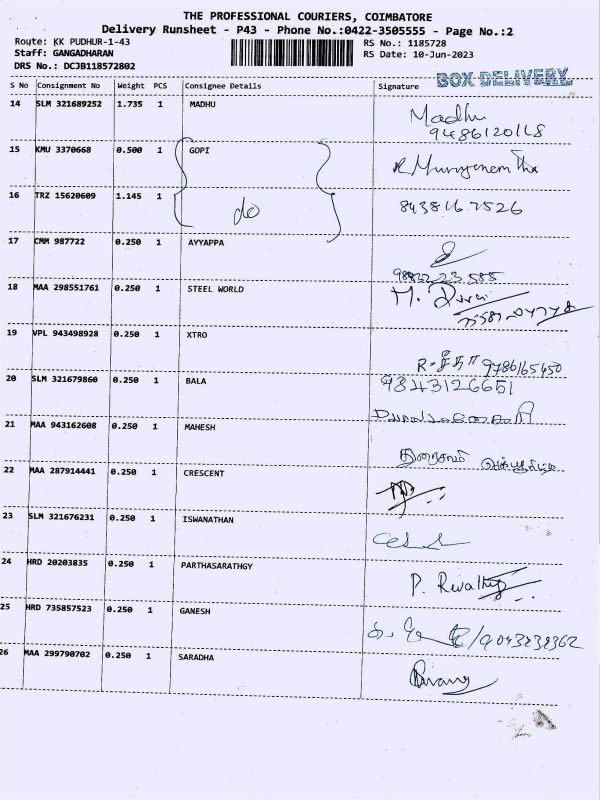 THE PROFESSIONAL COURIERS, COIMBATORE
Delivery Runsheet - P43 - Phone No.:0422-3505555 - Page No.:2
Route: KK PUDHUR-1-43 RS No.: 1185728
Staff: GANGADHARAN RS Date: 10-Jun-2023
DRS No.: DCJB118572802 BOX DELIVERY
S No Consignment No Weight PCS Consignee Details Signature
14 SLM 321689252 1.735 1 MADHU Madhu
15 KMU 3370668 0.500 1 GOPI
do
16 TRZ 15620609 1.145 1 8438167526
17 CMM 987722 0.250 1 AYYAPPA
18 MAA 298551761 0.250 1 STEEL WORLD M.
19 VPL 943498928 0.250 1 XTRO
9786165450
20 SLM 321679860 0.250 1 BALA 9843126651
21 MAA 943162608 0.250 1 MAHESH
22 MAA 287914441 0.250 1 CRESCENT
23 SLM 321676231 0.250 1 ISWANATHAN
24 HRD 20203835 0.250 1 PARTHASARATHGY P. Revathy
25 HRD 735857523 0.250 1 GANESH
26 MAA 299790702 0.250 1 SARADHA